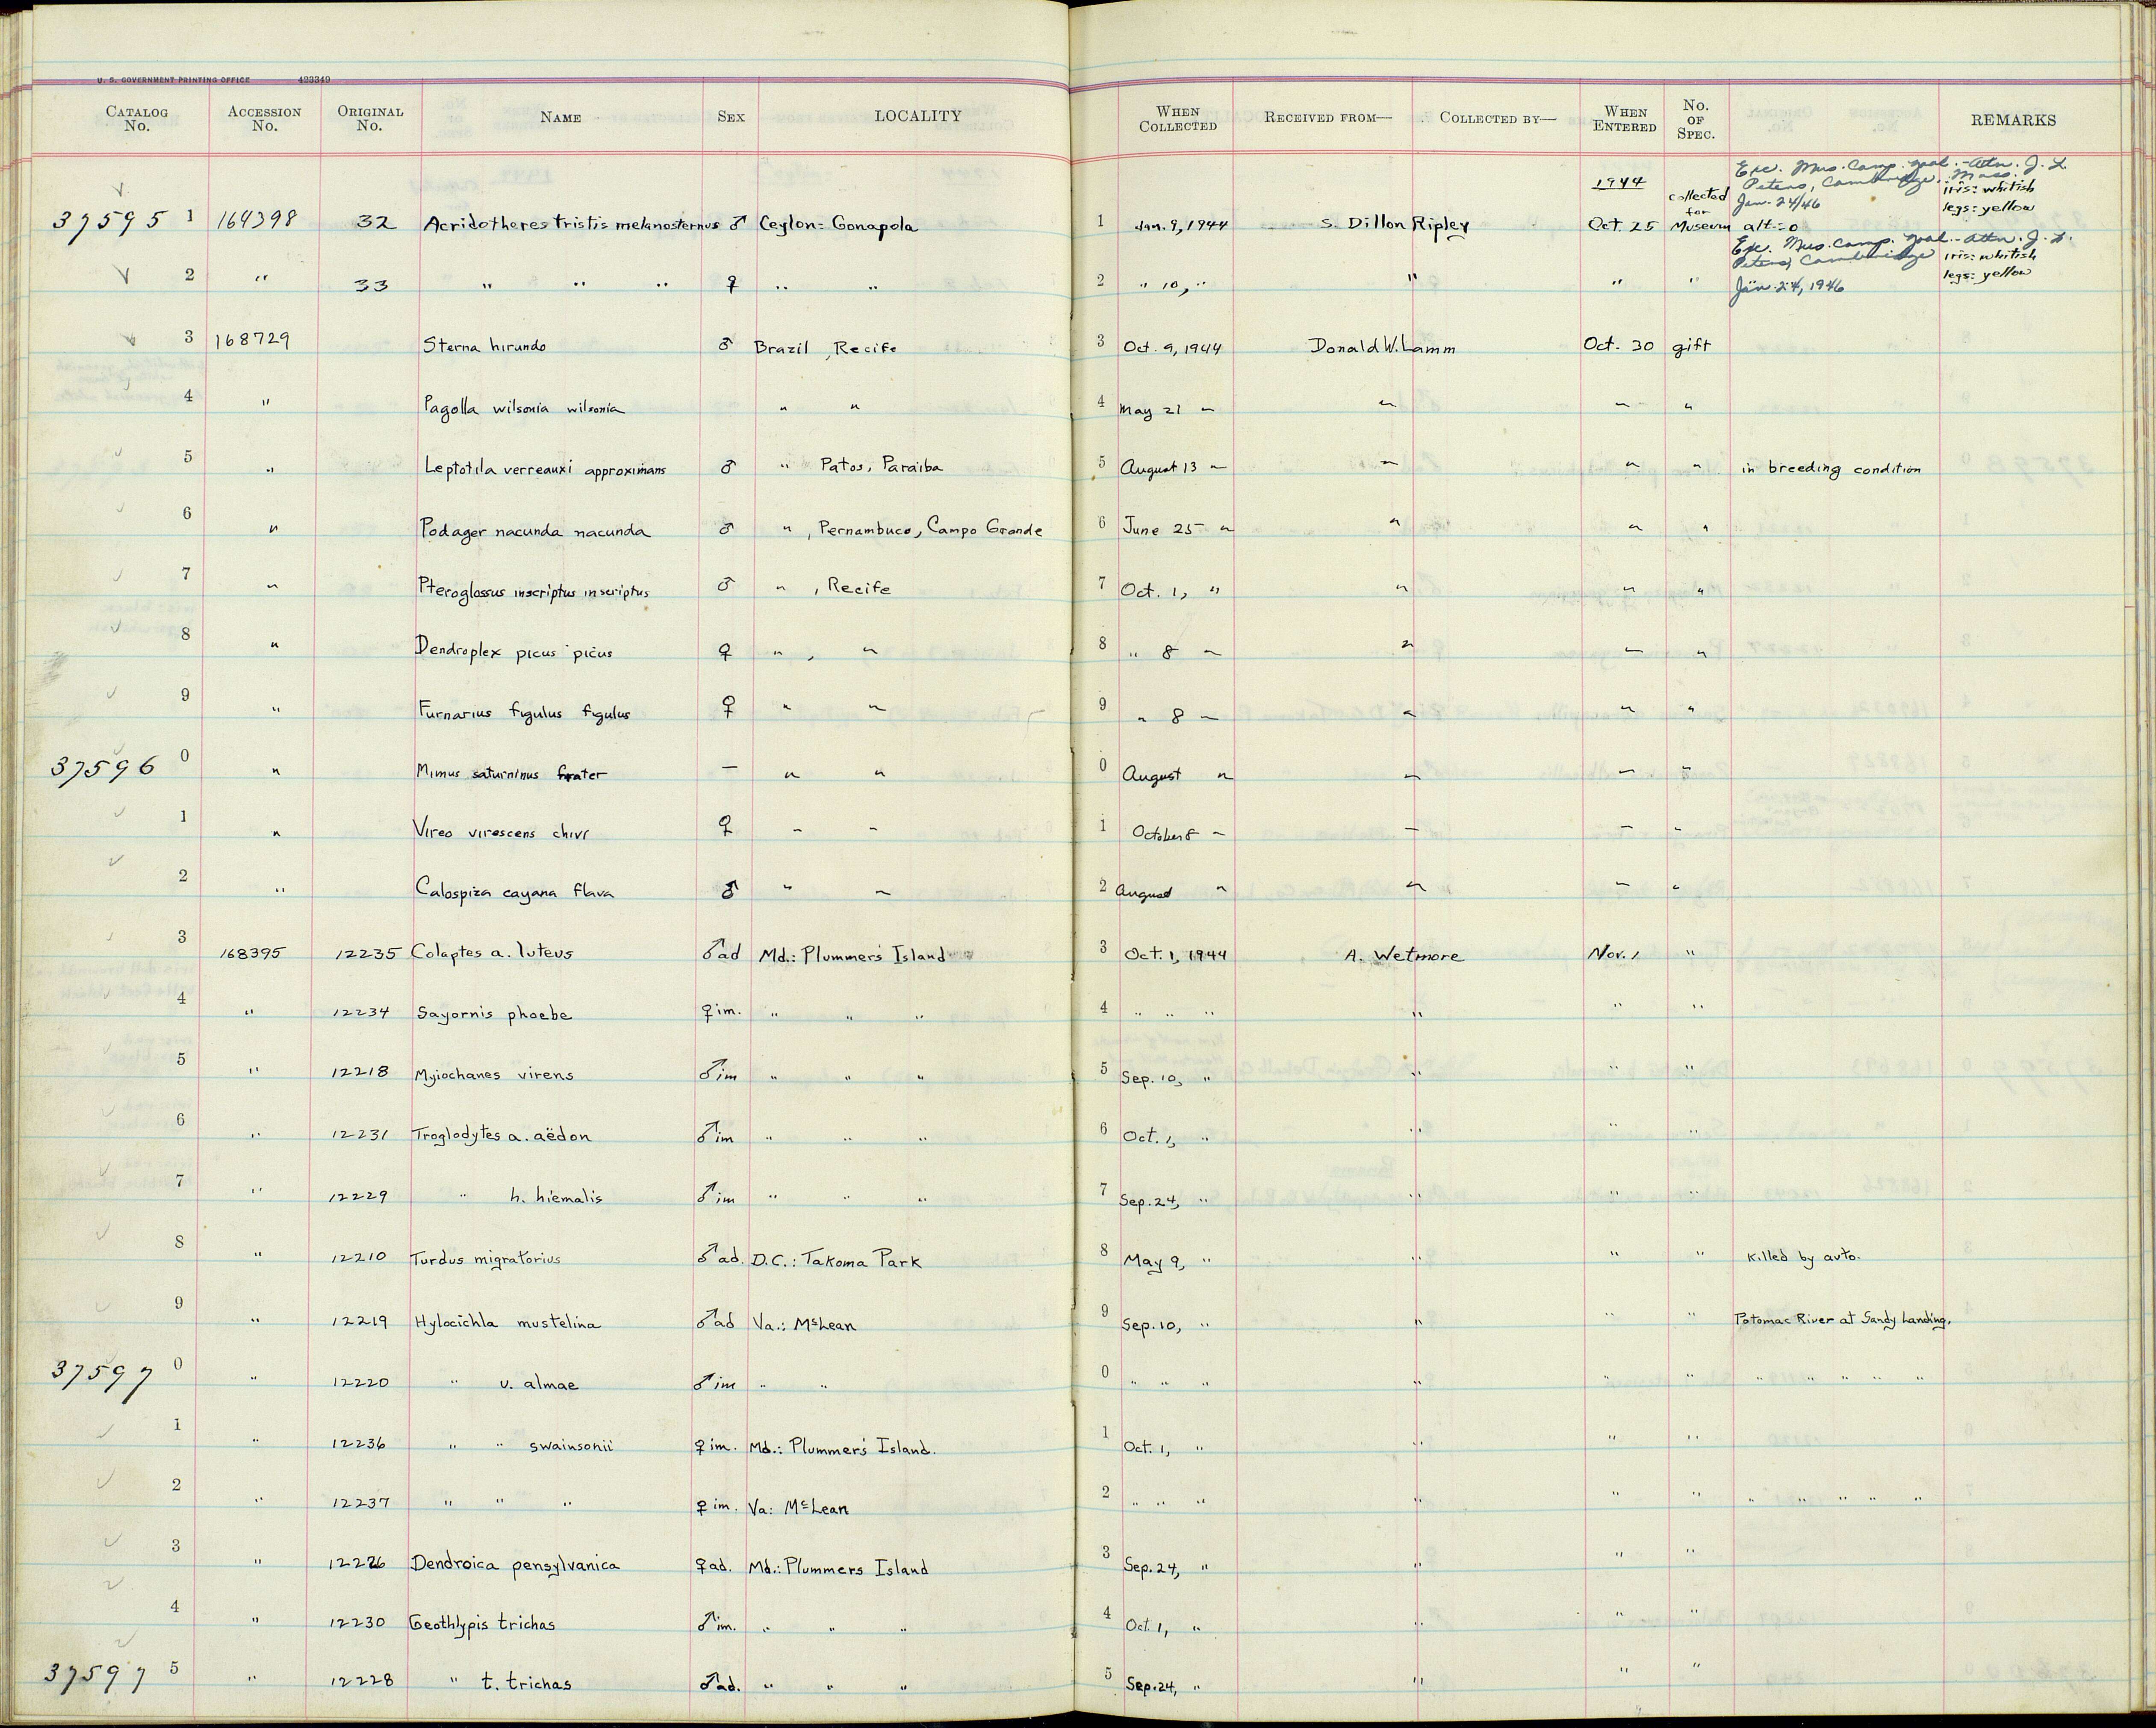 U. S. GOVERNMENT PRINTING OFFICE 423349
CATALOG No. ACCESSION No. ORIGINAL No. NAME SEX LOCALITY WHEN COLLECTED RECEIVED FROM— COLLECTED BY— WHEN ENTERED No. OF SPEC. REMARKS
Exc. Mus. Comp. Zool. - Attn. J. L.
1944 Peters, Cambridge, Mass. iris: whitish
collected for Jan. 24/46 legs: yellow
37595 1 164398 32 Acridotheres tristis melanosternus ♂ Ceylon: Gonapola 1 Jan. 9, 1944 S. Dillon Ripley Oct. 25 Museum alt.=0
Exc. Mus. Comp. Zool. - Attn. J. L.
Peters, Cambridge iris: whitish
2 " 33 " " " ♀ " " 2 " 10, " " " " Jan. 24, 1946 legs: yellow
3 168729 Sterna hirundo ♂ Brazil, Recife 3 Oct. 9, 1944 Donald W. Lamm Oct. 30 gift
4 " Pagolla wilsonia wilsonia " " 4 May 21 " " " "
5 " Leptotila verreauxi approximans ♂ " Patos, Paraiba 5 August 13 " " " " in breeding condition
6 " Podager nacunda nacunda ♂ ", Pernambuco, Campo Grande 6 June 25 " " " "
7 " Pteroglossus inscriptus inscriptus ♂ ", Recife 7 Oct. 1, " " " "
8 " Dendroplex picus picus ♀ ", " 8 " 8 " " " "
9 " Furnarius figulus figulus ♀ " " 9 " 8 " " " "
37596 0 " Mimus saturninus frater — " " 0 August " " " "
1 " Vireo virescens chivi ♀ " " 1 October 8 " " " "
2 " Calospiza cayana flava ♂ " " 2 August " " " "
3 168395 12235 Colaptes a. luteus ♂ad Md.: Plummers Island 3 Oct. 1, 1944 A. Wetmore Nov. 1 "
4 " 12234 Sayornis phoebe ♀im. " " " 4 " " " " " "
5 " 12218 Myiochanes virens ♂im " " " 5 Sep. 10, " " " "
6 " 12231 Troglodytes a. aëdon ♂im " " " 6 Oct. 1, " " " "
7 " 12229 " h. hiemalis ♂im " " " 7 Sep. 24, " " " "
8 " 12210 Turdus migratorius ♂ad. D.C.: Takoma Park 8 May 9, " " " " Killed by auto.
9 " 12219 Hylocichla mustelina ♂ad Va.: McLean 9 Sep. 10, " " " " Potomac River at Sandy Landing.
37597 0 " 12220 " u. almae ♂im " " 0 " " " " " " " " " " "
1 " 12236 " " swainsonii ♀im. Md.: Plummers Island. 1 Oct. 1, " " " "
2 " 12237 " " " ♀im. Va: McLean 2 " " " " " " " " " " "
3 " 12226 Dendroica pensylvanica ♀ad. Md.: Plummers Island 3 Sep. 24, " " " "
4 " 12230 Geothlypis trichas ♂im. " " " 4 Oct. 1, " " " "
37597 5 " 12228 " t. trichas ♂ad. " " " 5 Sep. 24, " " " "